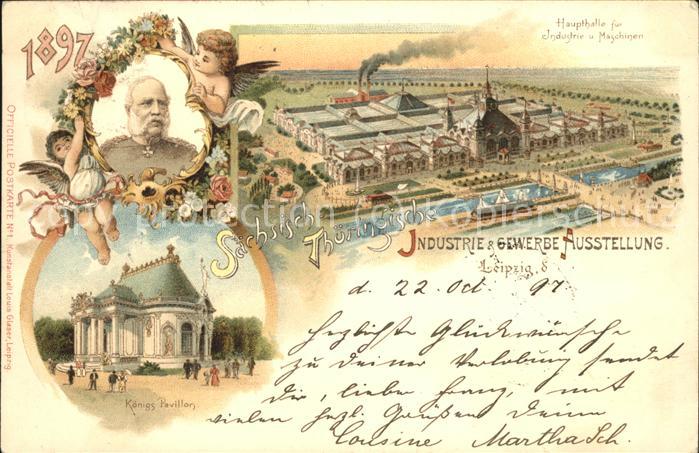 1897
Haupthalle für
Industrie u. Maschinen
OFFICIELLE POSTKARTE No 1. Kunstanstalt Louis Glaser, Leipzig.
Sächsisch
Thüringische
INDUSTRIE & GEWERBE AUSSTELLUNG.
Leipzig, d
d. 22 Oct 97.
Herzlichste Glückwünsche
zu deiner Verlobung sendet
Dir, lieber Franz, mit
vielen herzl. Grüßen Deine
Cousine Martha Sch.
Königs Pavillon.
copyright protection Copyrightschutz